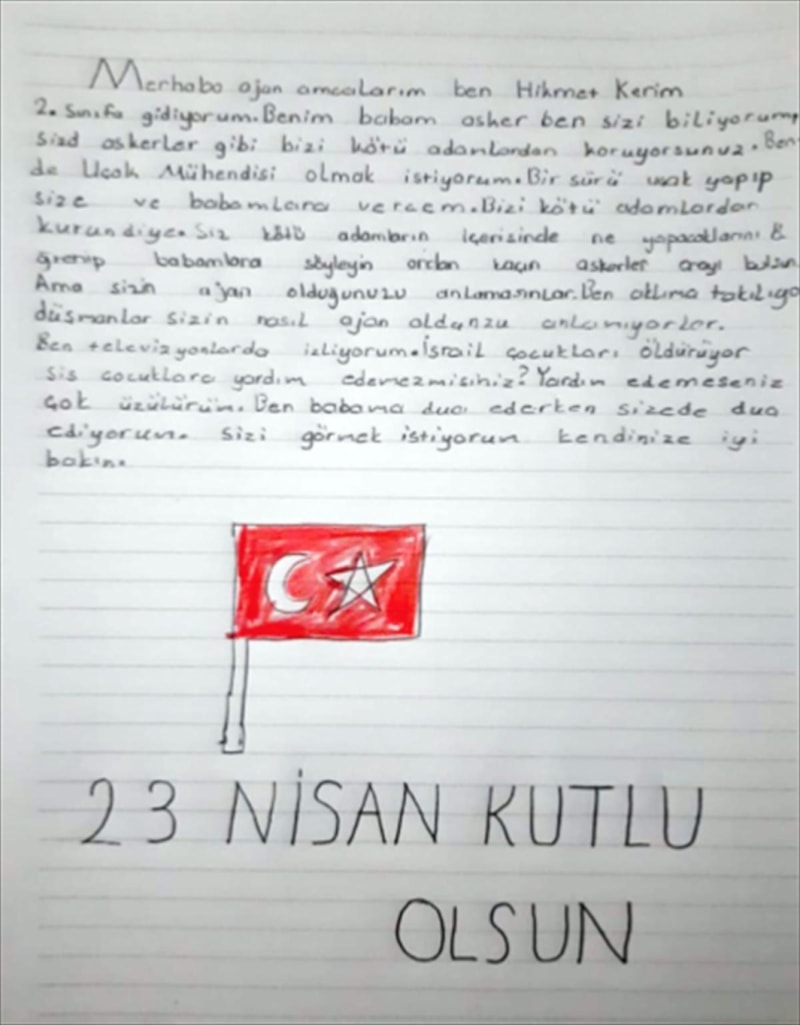 Merhaba ajan amcalarım ben Hikmet Kerim
2. Sınıfa gidiyorum. Benim babam asker ben sizi biliyorum,
sizd askerler gibi bizi kötü adamlardan koruyorsunuz. Ben
de Uçak Mühendisi olmak istiyorum. Bir sürü uçak yapıp
size ve babamlara vercem. Bizi kötü adamlardan
kurundiye. Siz kötü adamların içerisinde ne yapacaklarını ö
ğrenip babamlara söyleyin ordan kaçın askerler orayı bulsun
Ama sizin ajan olduğunuzu anlamasınlar. Ben aklıma takılıgo
düşmanlar sizin nasıl ajan oldunzu anlamıyorlar.
Ben televizyonlarda izliyorum. İsrail çocukları öldürüyor
sis çocuklara yardım edemezmisiniz? Yardın edemeseniz
çok üzülürün. Ben babama dua ederken sizede dua
ediyorun. sizi görnek istiyorun kendinize iyi
bakın.
23 NİSAN KUTLU
OLSUN